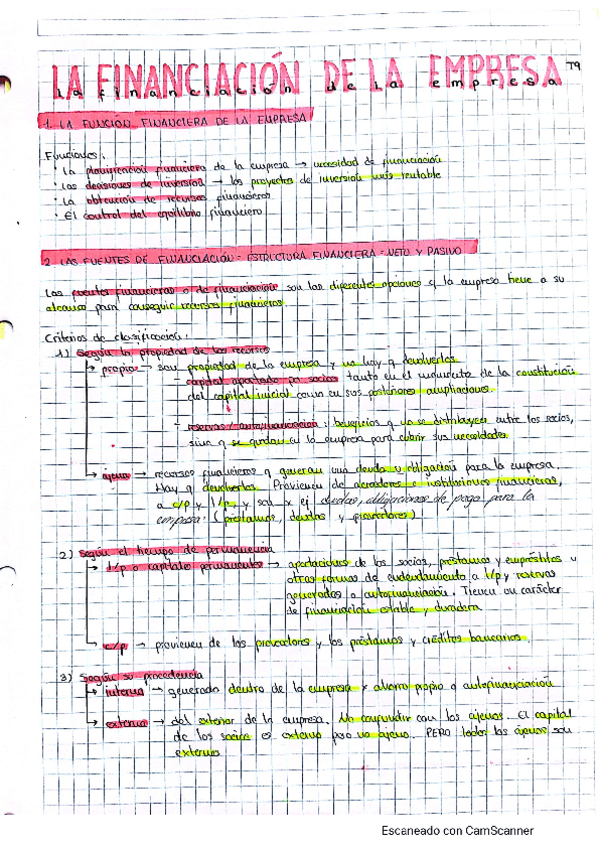 LA FINANCIACIÓN DE LA EMPRESA T9
la financiación de la empresa
1. LA FUNCIÓN FINANCIERA DE LA EMPRESA
Funciones:
· La planificación financiera de la empresa → necesidad de financiación
· Las decisiones de inversión → los proyectos de inversión más rentable
· La obtención de recursos financieros
· El control del equilibrio financiero
2. LAS FUENTES DE FINANCIACIÓN - ESTRUCTURA FINANCIERA = NETO Y PASIVO
Las fuentes financieras o de financiación son las diferentes opciones q la empresa tiene a su
alcance para conseguir recursos financieros.
Criterios de clasificación:
1) Según la propiedad de los recursos
↳ propia → son propiedad de la empresa y no hay q devolverlos
- capital aportado por socios tanto en el momento de la constitución
del capital inicial como en sus posteriores ampliaciones.
- reservas / autofinanciación: beneficios q no se distribuyen entre los socios,
sino q se quedan en la empresa para cubrir sus necesidades.
↳ ajena → recursos financieros q generan una deuda u obligación para la empresa.
Hay q devolverlos. Provienen de acreedores e instituciones financieras,
a c/p y l/p, y son x ej deudas, obligaciones de pago para la
empresa (préstamos, deudas y proveedores)
2) Según el tiempo de permanencia
↳ l/p o capitales permanentes → aportaciones de los socios, préstamos y empréstitos u
otras formas de endeudamiento a l/p y reservas
generadas o autofinanciación. Tienen un carácter
de financiación estable y duradera.
↳ c/p → provienen de los proveedores y los préstamos y créditos bancarios.
3) Según su procedencia
↳ interna → generada dentro de la empresa x ahorro propio o autofinanciación
↳ externa → del exterior de la empresa. No confundir con los ajenos. El capital
de los socios es externo pero no ajeno. PERO todos los ajenos son
externos
Escaneado con CamScanner